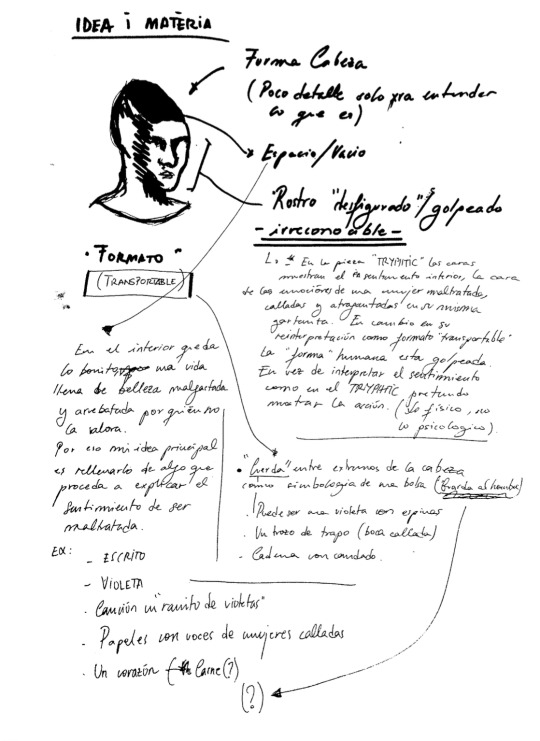 IDEA i MATÈRIA
Forma Cabeza
(Poco detalle solo pra entender
lo que es)
Espacio/Vacio
Rostro "desfigurado"/golpeado
- irreconocible -
· FORMATO "
(TRANSPORTABLE)
L> * En la pieza "TRYPHTIC" las caras
muestran el sentimiento interior, la cara
de las emociones de una mujer maltratada,
calladas y atragantadas en su misma
garganta. En cambio en su
reinterpretación como formato "transportable"
la "forma" humana esta golpeada.
En vez de interpretar el sentimiento
como en el TRYPHTIC, pretendo
mostrar la acción. (Lo físico, no
lo psicologico).
En el interior queda
lo bonito, una vida
llena de belleza malgastada
y arrebatada por quién no
la valora.
Por eso mi idea principal
es rellenarlo de algo que
proceda a explicar el
sentimiento de ser
maltratada.
· "Cuerda" entre extremos de la cabeza
como simbologia de una bolsa
. Puede ser una violeta con espinas
. Un trozo de trapo (boca callada)
- Cadena con candado.
EX:
- ESCRITO
- VIOLETA
· Canción "ramito de violetas"
- Papeles con voces de mujeres calladas
· Un corazón Carne(?)
(?)